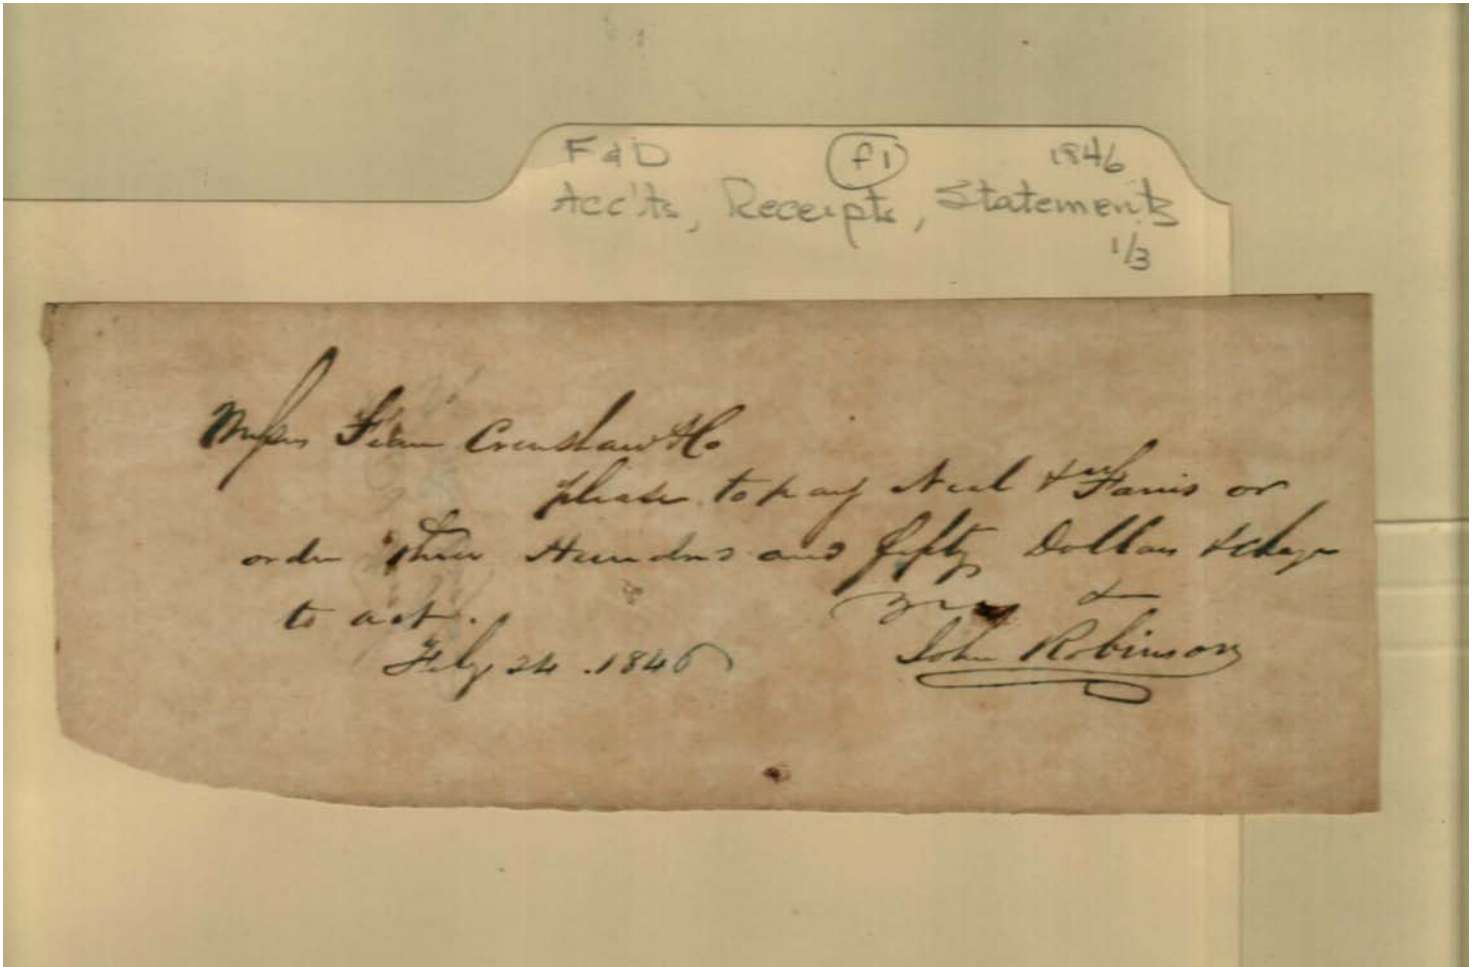 F & D (f1) 1846
Acc'ts, Receipts, Statements
1/3
Messrs Fearn Crenshaw & Co
please to pay Neel & Farris or
order Three Hundred and fifty Dollars & charge
to act. Yours &
Feby 24. 1846 John Robinson